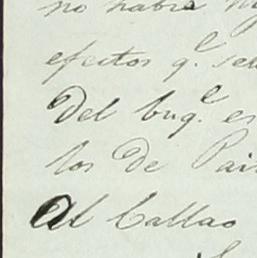 no habia
efectos q.e
Del buq.e es
los De Pai
Al Callao